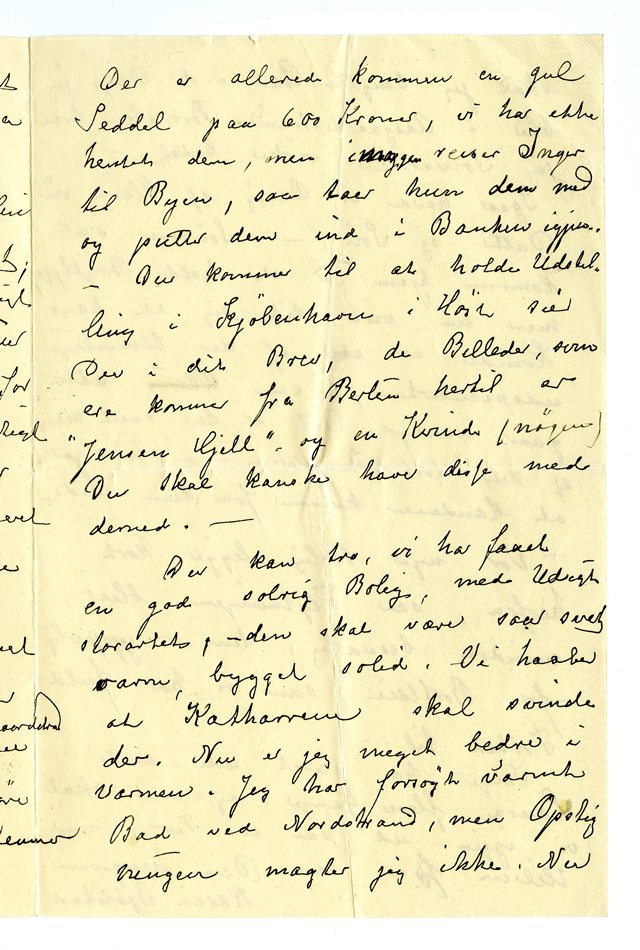 Der er allerede kommen en gul
Seddel paa 600 Kroner, vi har ikke
hentet dem, men imorgen reiser Inger
til Byen, saa taer hun dem med
og putter dem ind i Banken igjen.
– Du kommer til at holde Udstil-
ling i Kjøbenhavn i Høst sier
Du i dit Brev, de Billeder, som
ere kommer fra Berlin hertil er
"Jensen Hjell" – og en Kvinde (nøgen)
Du skal kanske have disse med
derned. —
Du kan tro, vi ha faaet
en god solrig Bolig, med Udsigt
storartet, – den skal være saa svert
varm, bygget solid. Vi haaber
at Katharren skal svinde
der. Nu er jeg meget bedre i
Varmen. Jeg har forsøgt varmt
Bad ved Nordstrand, men Opstig
ningen magter jeg ikke. Nu